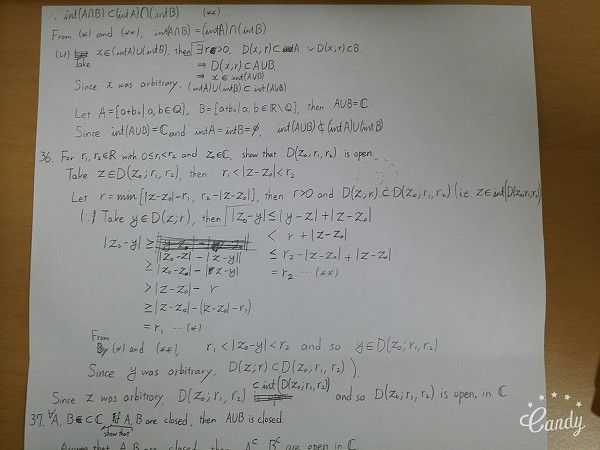 ∴ int(A∩B)⊂(intA)∩(intB) ··· (**)
From (*) and (**), int(A∩B)=(intA)∩(intB)
x∈(intA)∪(intB), then ∃r>0, D(x;r)⊂A ∨ D(x;r)⊂B.
Take ⇒ D(x;r)⊂A∪B
⇒ x∈int(A∪B)
Since x was arbitrary, (intA)∪(intB)⊂int(A∪B)
Let A={a+bi|a,b∈Q}, B={a+bi|a,b∈R\Q}, then A∪B=ℂ.
Since int(A∪B)=ℂ and intA=intB=∅, int(A∪B)⊄(intA)∪(intB)
36. For r₁,r₂∈R with 0≤r₁<r₂ and z₀∈ℂ, show that D(z₀;r₁,r₂) is open.
Take z∈D(z₀;r₁,r₂), then r₁<|z-z₀|<r₂
Let r=min{|z-z₀|-r₁, r₂-|z-z₀|}, then r>0 and D(z;r)⊂D(z₀;r₁,r₂) (i.e. z∈int(D(z₀;r₁,r₂))
(∵) Take y∈D(z;r), then |z₀-y|≤|y-z|+|z-z₀|
< r+|z-z₀|
≤ r₂-|z-z₀|+|z-z₀|
= r₂ ··· (**)
|z₀-y| ≥ ||z₀-z|-|z-y||
≥ |z₀-z|-|z-y|
> |z-z₀|- r
≥ |z-z₀|-(|z-z₀|-r₁)
= r₁ ··· (*)
From (*) and (**), r₁<|z₀-y|<r₂ and so y∈D(z₀;r₁,r₂)
Since y was arbitrary, D(z;r)⊂D(z₀;r₁,r₂))
Since z was arbitrary, D(z₀;r₁,r₂) ⊂int(D(z₀;r₁,r₂)) and so D(z₀;r₁,r₂) is open in ℂ.
37. ∀A,B⊂ℂ, if A,B are closed, then A∪B is closed.
show that
Assume that A,B are closed, then Aᶜ, Bᶜ are open in ℂ.
Candy